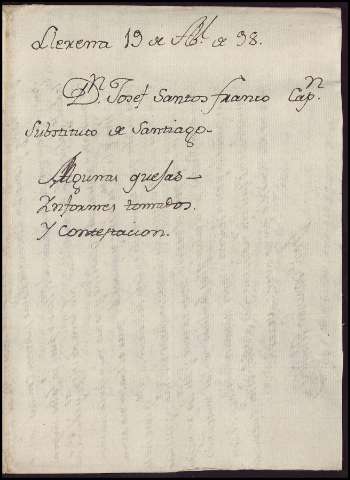 Llerena 19 de Abl. de 98.
Dn. Josef Santos franco Capn.
Substituto de Santiago
Algunas quejas
Ynformes tomados.
Y Contestacion.